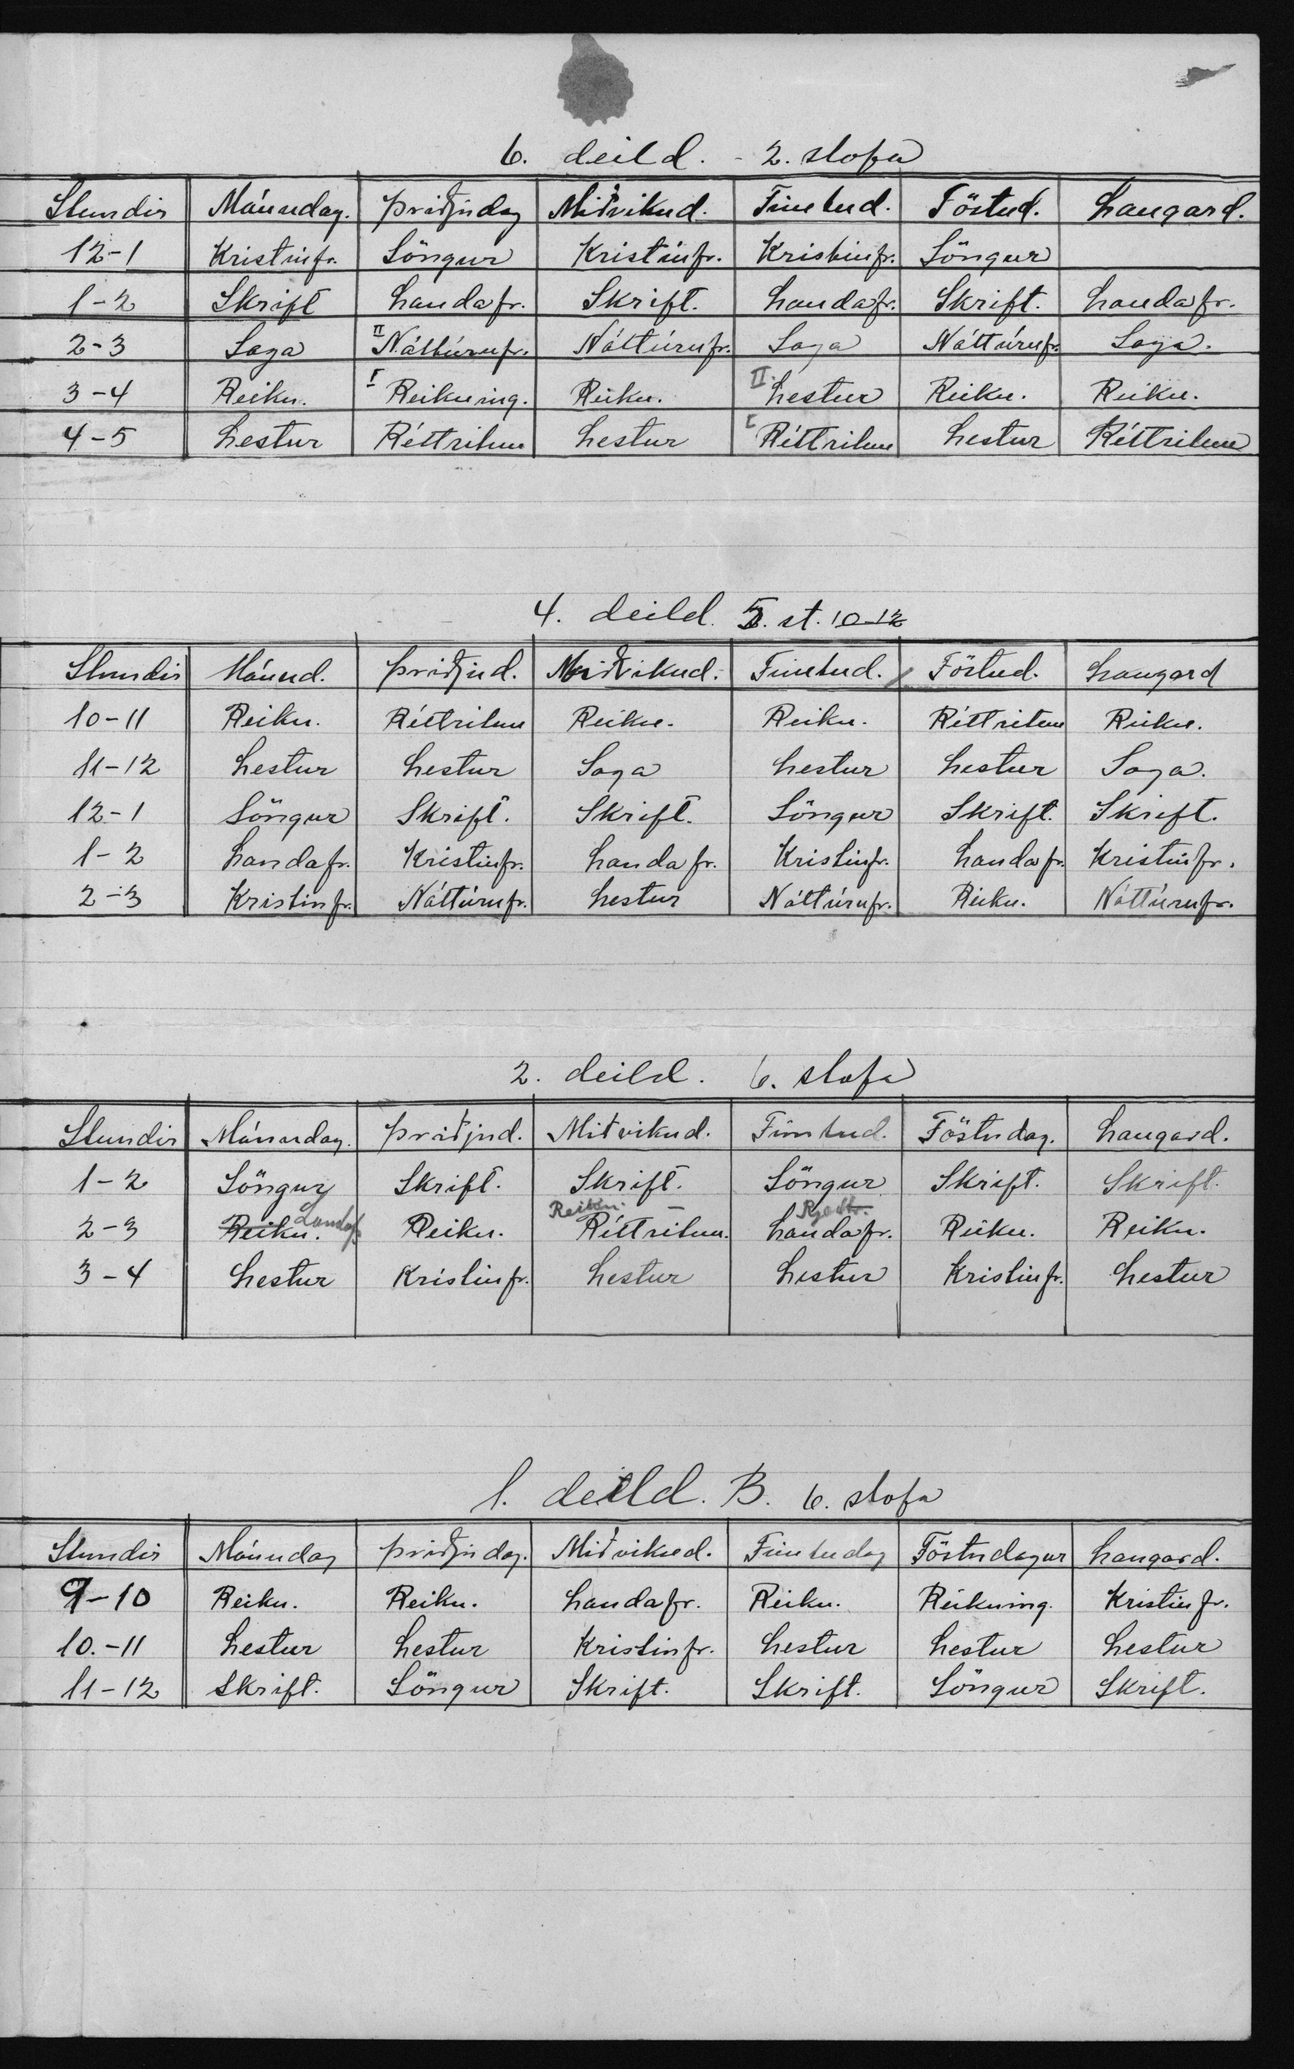 6. deild. - 2. stofa
Stundir Mánudag. Þriðjudag Miðvikud. Fimtud. Föstud. Laugard.
12-1 Kristinfr. Söngur Kristinfr. Kristinfr. Söngur
1-2 Skrift Landafr. Skrift. Landafr. Skrift. Landafr.
2-3 Saga II Náttúrufr. Náttúrufr. Saga Náttúrufr. Saga.
3-4 Reikn. I Reikning. Reikn. II. Lestur Reikn. Reikn.
4-5 Lestur Réttritun Lestur I Réttritun Lestur Réttritun
4. deild. 5. st. 10-12
Stundir Mánud. Þriðjud. Miðvikud. Fimtud. Föstud. Laugard
10-11 Reikn. Réttritun Reikn. Reikn. Réttritun Reikn.
11-12 Lestur Lestur Saga Lestur Lestur Saga.
12-1 Söngur Skrift. Skrift. Söngur Skrift. Skrift.
1-2 Landafr. Kristinfr. Landafr. Kristinfr. Landafr. Kristinfr.
2-3 Kristinfr. Náttúrufr. Lestur Náttúrufr. Reikn. Náttúrufr.
2. deild. 6. stofa
Stundir Mánudag. Þriðjud. Miðvikud. Fimtud. Föstudag. Laugard.
1-2 Söngur Skrift. Skrift. Söngur Skrift. Skrift.
Landaf. Reikn.
2-3 Reikn. Reikn. Réttritun. Landafr. Reikn. Reikn.
3-4 Lestur Kristinfr. Lestur Lestur Kristinfr. Lestur
1. deild. B. 6. stofa
Stundir Mánudag Þriðjudag. Miðvikud. Fimtudag Föstudagur Laugard.
9-10 Reikn. Reikn. Landafr. Reikn. Reikning. Kristinfr.
10.-11 Lestur Lestur Kristinfr. Lestur Lestur Lestur
11-12 Skrift. Söngur Skrift. Skrift. Söngur Skrift.